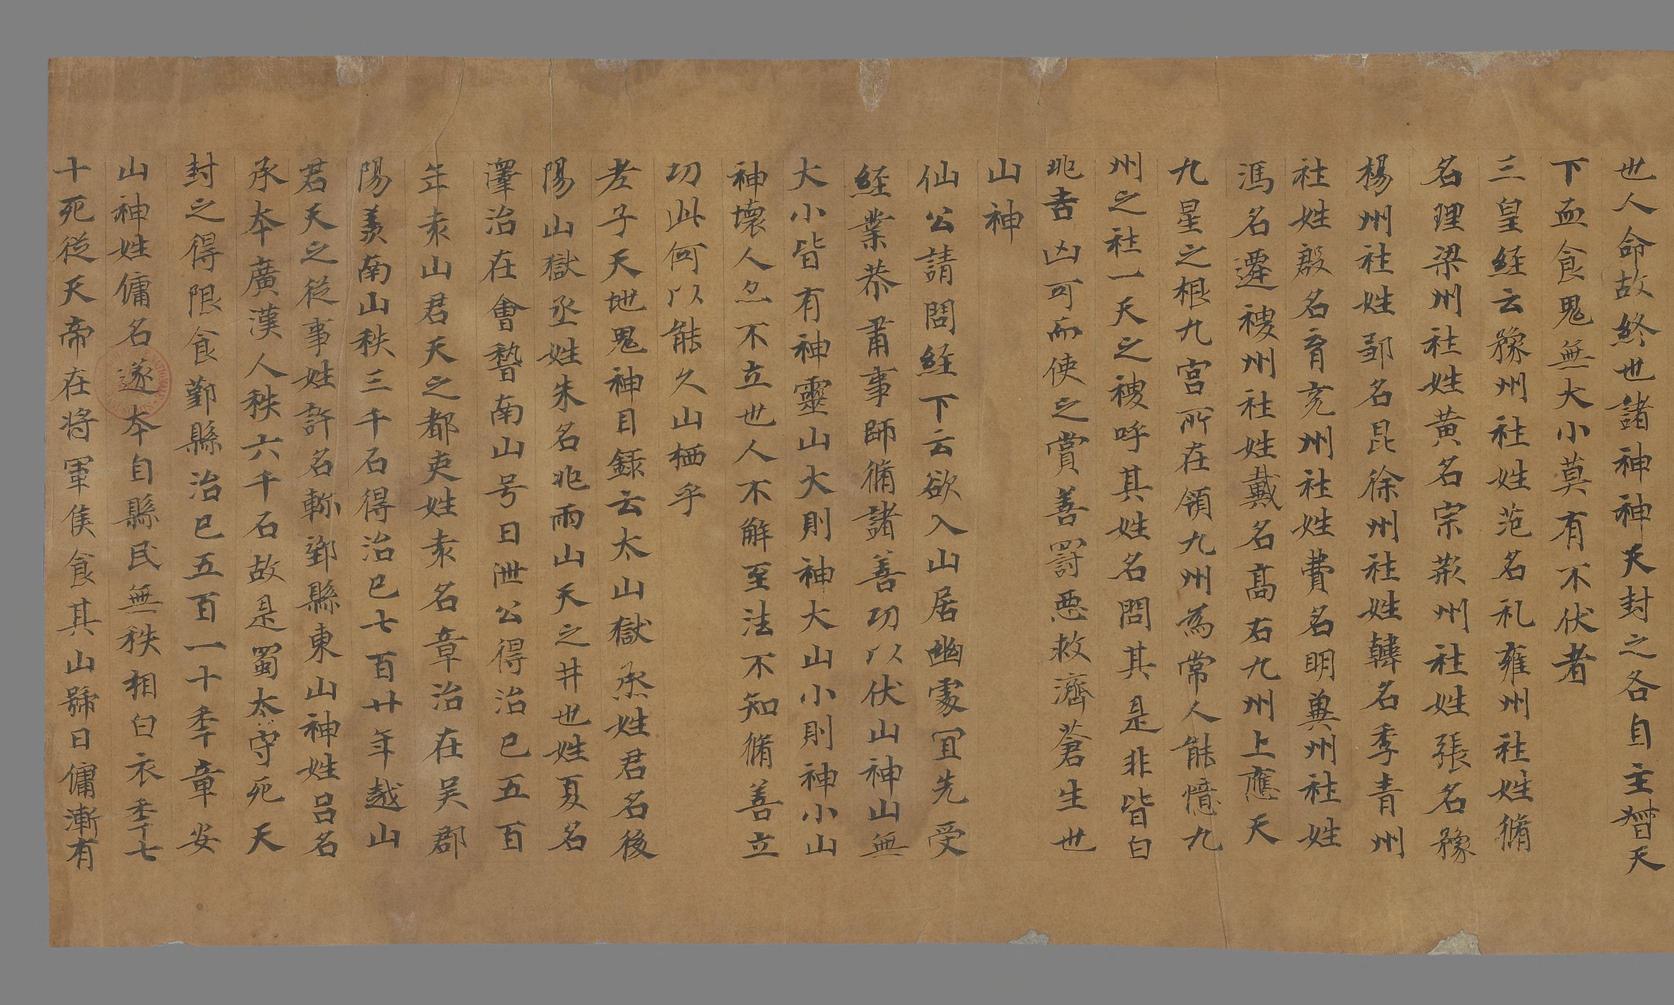 世人命故終世諸神神天封之各自主智天
下血食鬼無大小莫有不伏者
三皇経云豫州社姓范名礼雍州社姓脩
名理梁州社姓黄名宗荊州社姓張名豫
楊州社姓邹名昆徐州社姓韓名季青州
社姓殷名育兖州社姓費名明兾州社姓
馮名遷稷州社姓戴名髙右九州上應天
九星之根九宮所在領九州為常人能憶九
州之社一天之稷呼其姓名問其是非皆白
兆吉凶可而使之賞善罰悪救濟蒼生世
山神
仙公請問経下云欲入山居幽處冝先受
経業恭肅事師脩諸善功以伏山神山無
大小皆有神靈山大則神大山小則神小山
神壊人忽不立世人不解至法不知脩善立
功此何以能久山栖乎
老子天地鬼神目録云太山獄丞姓君名後
陽山獄丞姓朱名兆雨山天之井也姓夏名
澤治在會稽南山号曰泄公得治已五百
年耒山君天之都吏姓耒名章治在吴郡
陽羨南山秩三千石得治已七百廿年越山
君天之従事姓許名斬鄞縣東山神姓呂名
承本廣漢人秩六千石故是蜀太守死天
封之得限食鄞縣治已五百一十季章安
山神姓傭名遂本自縣民無秩相白衣季十七
十死従天帝在将軍侯食其山號曰傭漸有